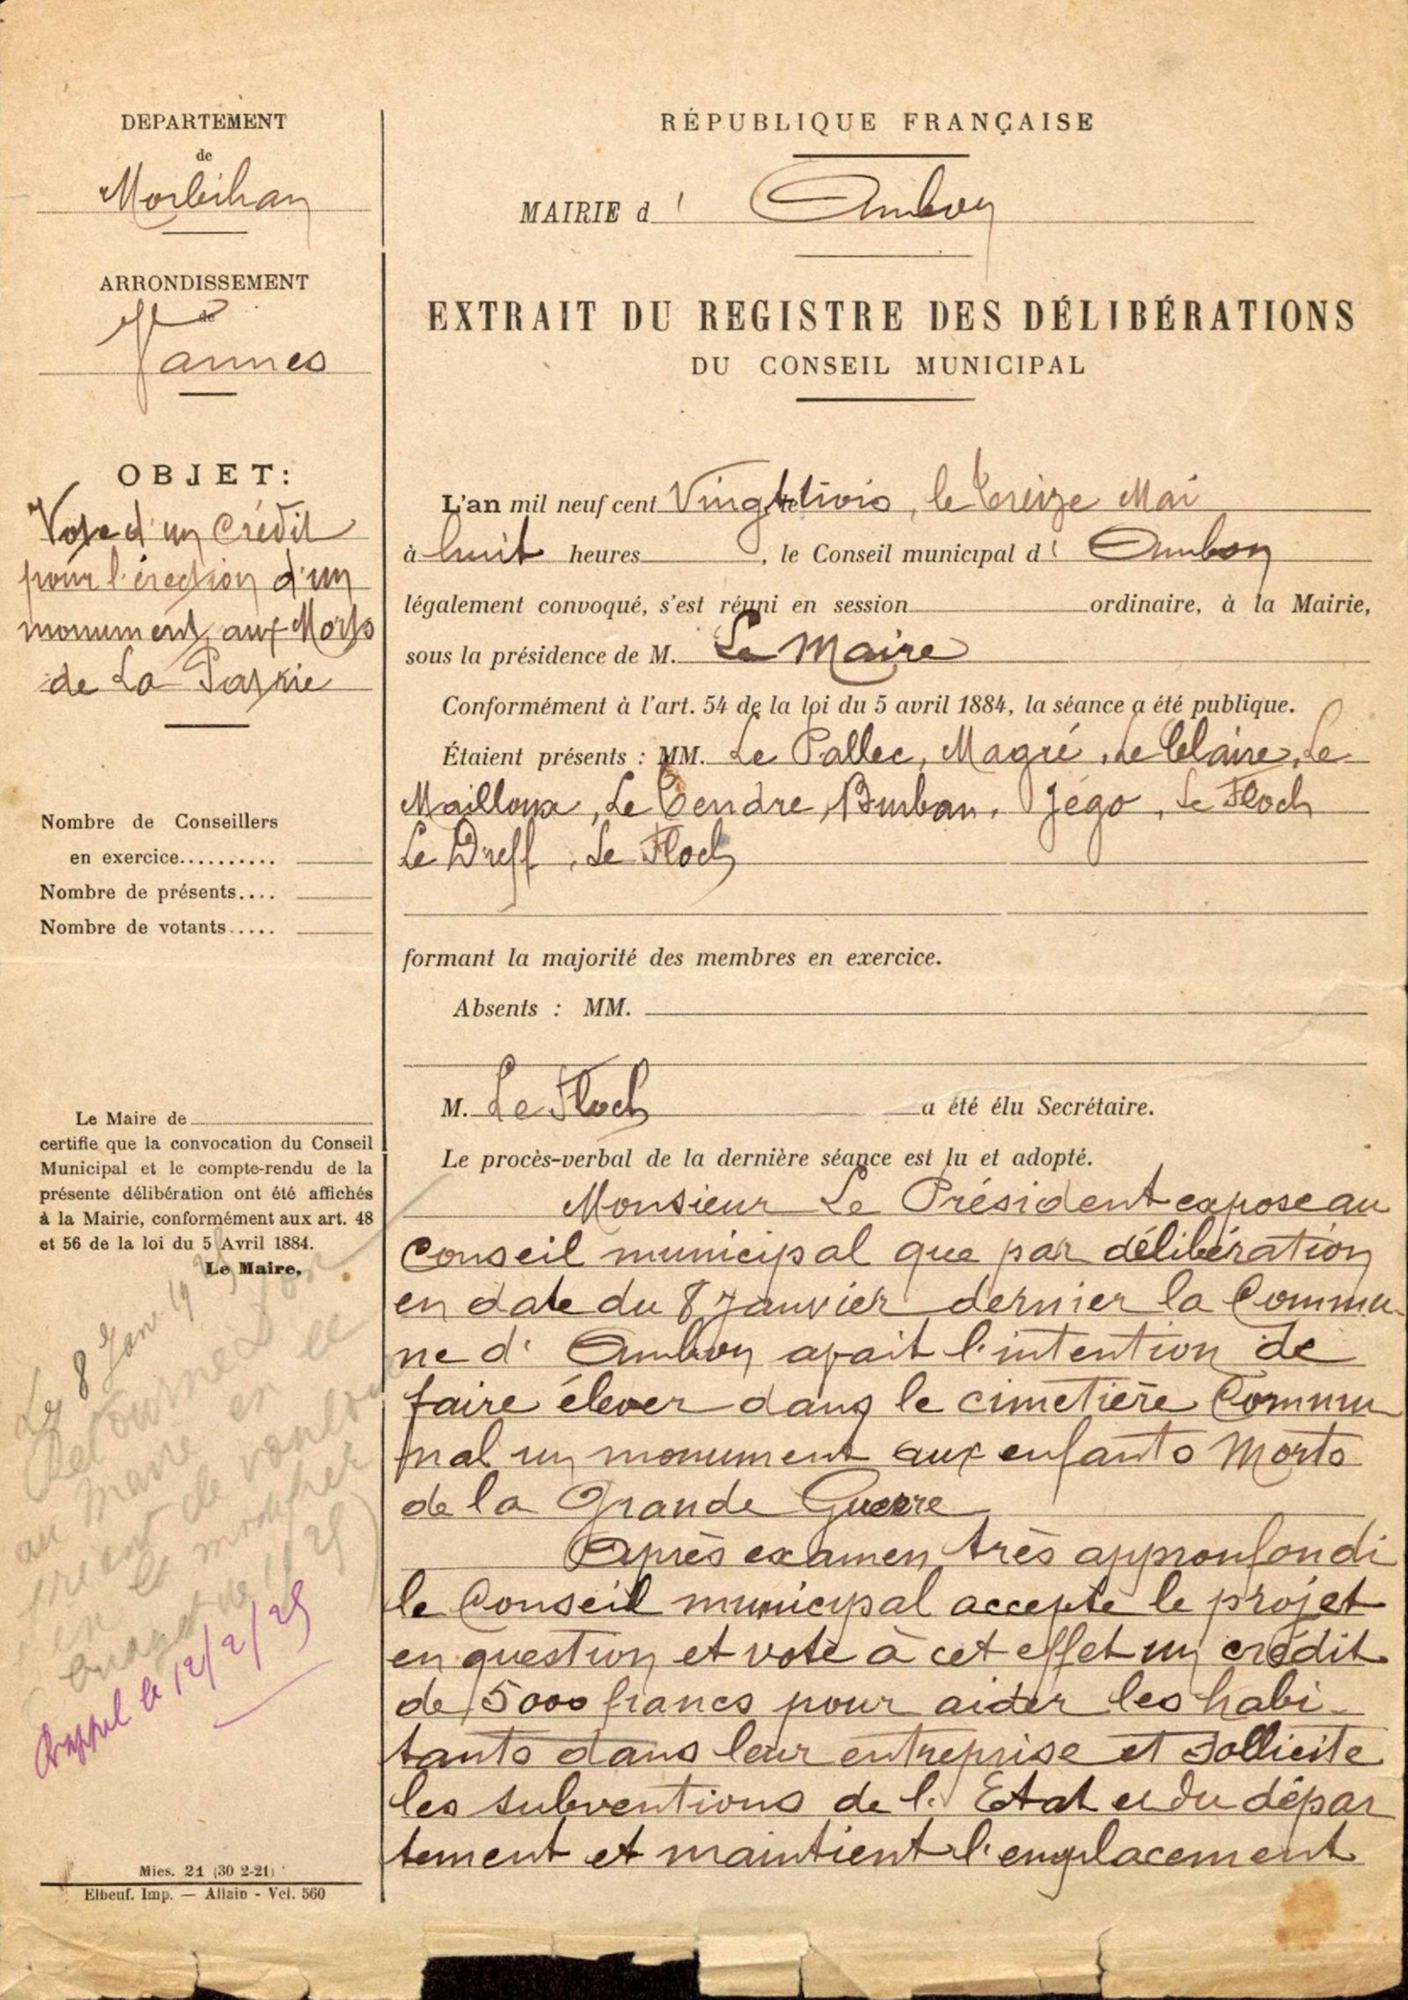 DEPARTEMENT
de
Morbihan
ARRONDISSEMENT
de
Vannes
OBJET:
Vote d'un Crédit
pour l'érection d'un
monument aux Morts
de La Patrie
Nombre de Conseillers
en exercice..........
Nombre de présents....
Nombre de votants.....
Le Maire de
certifie que la convocation du Conseil
Municipal et le compte-rendu de la
présente délibération ont été affichés
à la Mairie, conformément aux art. 48
et 56 de la loi du 5 Avril 1884.
Le Maire,
Le 8 Janv. 19
Retourné
au Maire en le
priant de vouloir
bien le modifier
budget de 1925)
Rappel le 12/2/25
Mies. 21 (30 2-21)
Elbeuf. Imp. — Allain - Vel. 560
RÉPUBLIQUE FRANÇAISE
MAIRIE d' Ambon
EXTRAIT DU REGISTRE DES DÉLIBÉRATIONS
DU CONSEIL MUNICIPAL
L'an mil neuf cent Vingt trois, le treize Mai
à huit heures, le Conseil municipal d' Ambon
légalement convoqué, s'est réuni en session ordinaire, à la Mairie,
sous la présidence de M. Le Maire
Conformément à l'art. 54 de la loi du 5 avril 1884, la séance a été publique.
Étaient présents : MM. Le Pallec, Magré, Le Claire, Le
Mailloux, Le Tendre, Burban, Jégo, Le Floch
Le Dreff, Le Floch
formant la majorité des membres en exercice.
Absents : MM.
M. Le Floch a été élu Secrétaire.
Le procès-verbal de la dernière séance est lu et adopté.
Monsieur Le Président expose au
Conseil municipal que par délibération
en date du 8 Janvier dernier la Commu-
ne d' Ambon avait l'intention de
faire élever dans le cimetière Commu
nal un monument aux enfants Morts
de la Grande Guerre
Après examen très appronfondi
le Conseil municipal accepte le projet
en question et vote à cet effet un crédit
de 5000 francs pour aider les habi-
tants dans leur entreprise et sollicite
les subventions de l'Etat et du dépar
tement et maintient l'emplacement